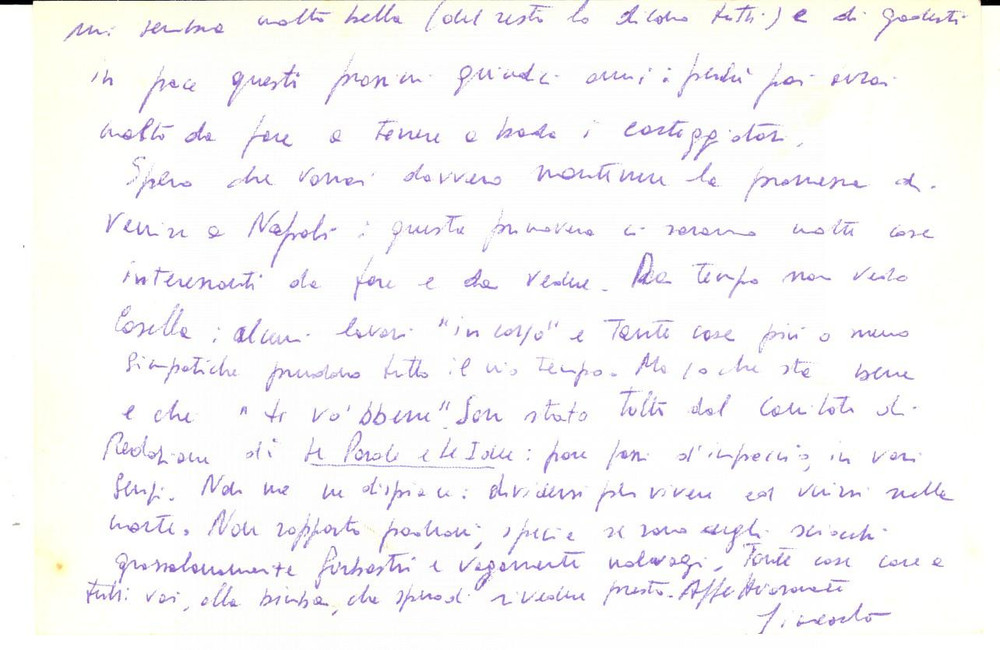 mi sembra molto bella (del resto lo dicono tutti) e di goderti
in pace questi prossimi quindici anni: perché poi avrai
molto da fare a tenere a bada i corteggiatori.
Spero che vorrai davvero mantenere la promessa di
venire a Napoli: questa primavera ci saranno molte cose
interessanti da fare e da vedere. Da tempo non vedo
Casella; alcuni lavori "in corso" e tante cose più o meno
simpatiche prendono tutto il mio tempo. Ma so che sta bene
e che "te vo' bbene". Son stato tolto dal Comitato di
Redazione di Le Parole e le Idee: pare fossi d'impaccio, in vari
sensi. Non me ne dispiace: dividersi per vivere ed unirsi nella
morte. Non sopporto padroni, specie se sono degli sciocchi
grossolanamente furbastri e vagamente malvagi. Tante cose care a
tutti voi, alla bimba, che spero di rivedere presto. Affettuosamente